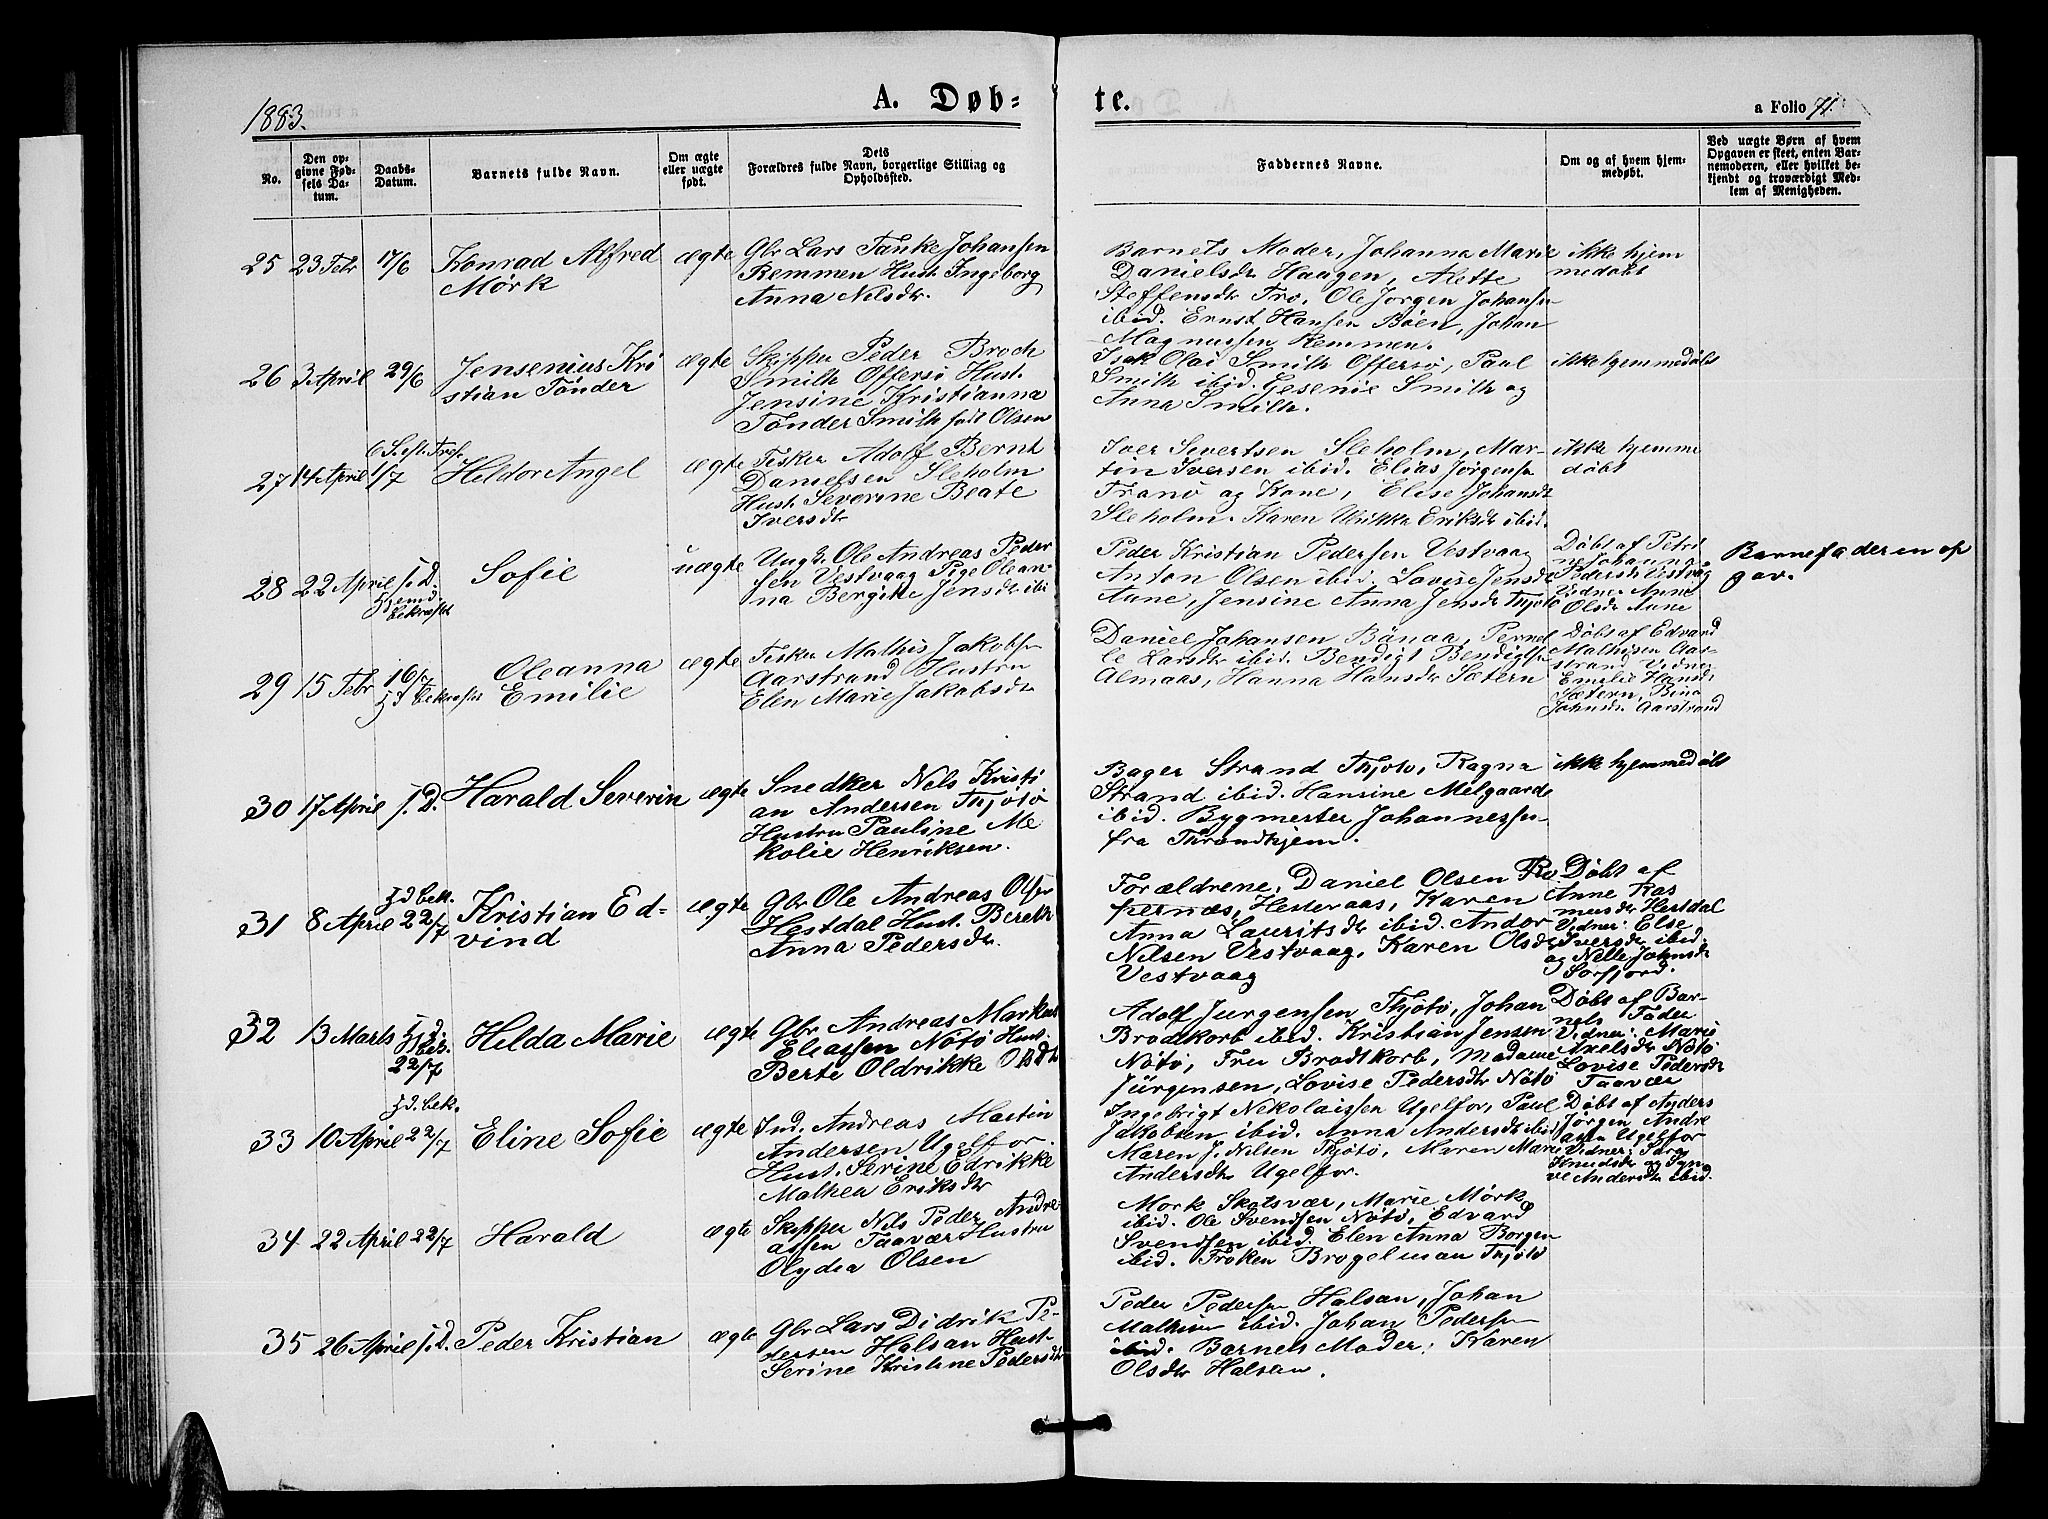 1883.
A. Døb-
te.
a Folio 71.
No.
Den op-
givne Fød-
sels Da-
tum.
Daabs-
Datum.
Barnets fulde Navn.
Om ægte
eller uægte
født.
Dets
Forældres fulde Navn, borgerlige Stilling og
Opholdssted.
Faddernes Navne.
Om og af hvem hjem-
medøbt.
Ved uægte Børn af hvem
Opgaven er skeet, enten Bar-
nemoderen, eller hvilket be-
kjendt og troværdigt Med-
lem af Menigheden.
25 23 Febr 17/6
Konrad Alfred
Mörk
ægte
Gbr Lars Tanke Johansen
Remmen Hust. Ingeborg
Anna Nilsdtr.
Barnets Moder, Johanna Marie
Danielsdtr Haagen, Alette
Steffensdtr Tro, Ole Jörgen Johansen
ibid. Ernst Hansen Böen, Johan
Magnussen Remmen.
ikke hjem
medøbt
26 3 April 29/6
Jensenius Kri
stian Tönder
ægte
Skipper Peder Broch
Smith Offersö Hust.
Jensine Kristianna
Tönder Smith født Olsen
Isak Olai Smith Offersö, Paul
Smith ibid. Gesenie Smith og
Anna Smith.
ikke hjemmedøbt
6 S. eft. Tref.
27 14 April 1/7
Heldor Angel
ægte
Fisker Adolf Bernt
Danielsen Sleholm
Hust. Severine Beate
Iversdtr
Iver Sivertsen Sleholm, Mar-
tin Iversen ibid. Elias Jörgensen
Tranö og Kone, Elise Johansdtr
Sleholm. Karen Ulrikka Eriksdtr ibid.
ikke hjemme
döbt
28 22 April s. D.
Hjemd.
bekræftet
Sofie
uægte
Ungk. Ole Andreas Peder
sen Vestvaag Pige Olean-
na Bergitte Jensdtr ibi
Peder Kristian Pedersen Vestvaag
Anton Olsen ibid. Lovise Jensdtr
Aune, Jensine Anna Jensdtr Thjötö
Döbt af Petri
ne Johanna
Pedersdtr Vestvag
Vidner Anne
Olsdtr Aune
Barnefaderen op
gav.
29 15 Febr 16/7
Hjd bekræftet
Oleanna
Emilie
ægte
Fisker Mathis Jakobsen
Aarstrand Hustru
Elen Marie Jakobsdtr
Daniel Johansen Bönaa, Pernel
le Larsdtr ibid. Bendigt Bendigtsen
Almaas, Hanna Hansdtr Sætern
Döbt af Edvard
Mathisen Aar-
strand Vidner
Emilie Hansd.
Sætern, Bina
Johnsdtr Aarstrand
30 17 April s. D.
Harald Severin
ægte
Snedker Nels Kristi
an Andersen Thjötö
Hustru Pauline Ne
kolie Henriksen.
Bager Strand Thjötö, Ragna
Strand ibid. Hansine Melgaard
ibid. Bygmester Johannessen
fra Throndhjem.
ikke hjemmedøbt
Hjd bek.
31 8 April 22/7
Kristian Ed-
vind
ægte
Gbr Ole Andreas Olsen
Hestdal Hust. Bereth
Anna Pedersdtr.
Forældrene, Daniel Olsen Ro
pernæs, Hestevaas, Karen
Anna Lauritsdtr ibid. Andor
Nilsen Vestvaag, Karen Olsdtr
Vestvaag
Döbt af
Anne Ras
musdtr Hestdal
Vidner: Else
Iversdtr ibid.
og Nelle Johnsdtr
Sörfjord.
32 13 Marts Hjd.
bek.
22/7
Helda Marie
ægte
Gbr Andreas Markus
Eliassen Nötö Hust.
Berte Oldrikke Olsdtr
Adolf Jürgensen Thjötö, Johan
Brodtkorb ibid. Kristian Jensen
Nötö, Fru Brodtkorb, Madame
Jürgensen, Lovise Pedersdtr Nötö
Döbt af Bar-
nets Fader
Vidner: Marie
Axelsdtr Nötö
Lovise Pedersdtr
Taavær
Hjd. bek.
33 10 April 22/7
Eline Sofie
ægte
Ind. Andreas Martin
Andersen Ugelfor.
Hust. Serine Edrikke
Mathea Eriksdtr
Ingebrigt Nekolaissen Ugelfor, Paul
Jakobsen ibid. Anna Andersdtr ibid,
Maren J. Nilsen Thjötö, Maren Marie
Andersdtr Ugelfor.
Döbt af Anders
Jörgen Andre
asen Ugelfor
Vidner: Sara
Knudsdtr og Syn
ve Andersdtr ibid.
34 22 April 22/7
Harald
ægte
Skipper Nils Peder Andre-
assen Taavær Hustru
Olydia Olsen
Mörk Skotsvær, Marie Mörk
ibid. Ole Svendsen Nötö, Edvard
Svendsen ibid. Elen Anna Borgen
ibid. Fröken Brogelman Thjötö
35 26 April s. D.
Peder Kristian
ægte
Gbr Lars Didrik Pe-
dersen Halsan Hust.
Serine Kristine Pedersdtr
Peder Pedersen Halsan, Johan
Mathisen ibid. Johan Pedersen
ibid. Barnets Moder; Karen
Olsdtr Halsan.